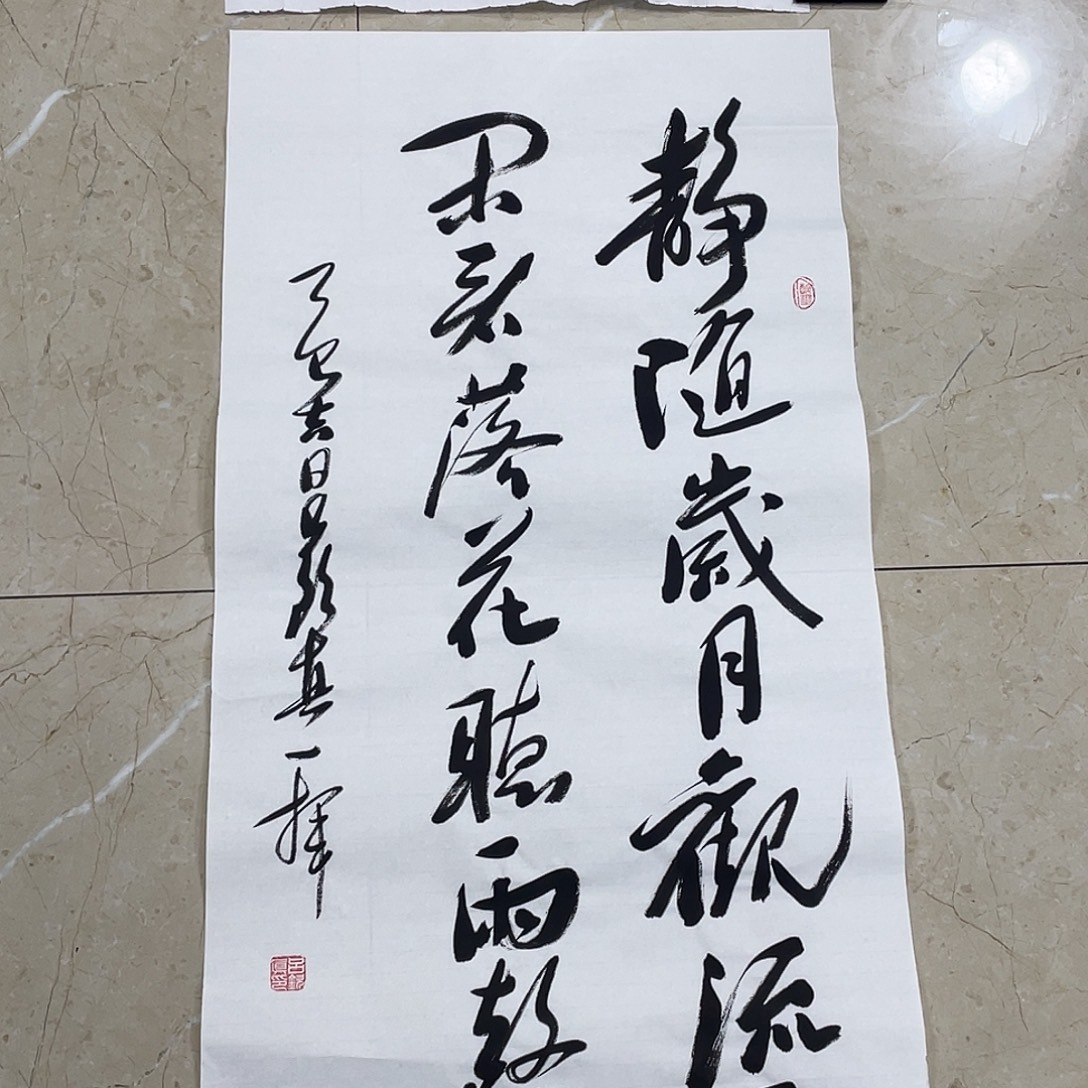 靜隨歲月觀流
闲看落花聽雨
乙巳吉日吕真一揮